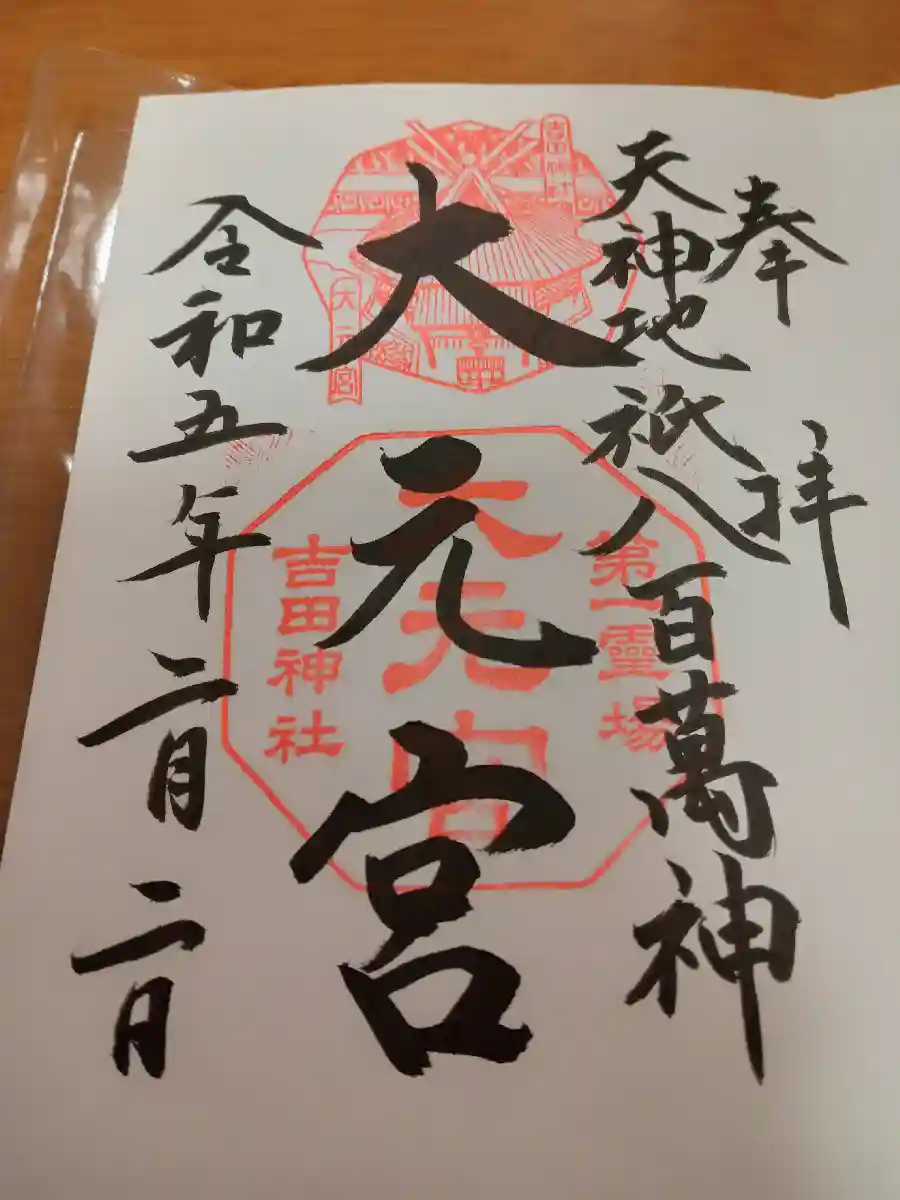 奉拝
天神地祇八百萬神
大元宮
令和五年二月二日
吉田神社
大元宮
第一霊場
大元宮
吉田神社